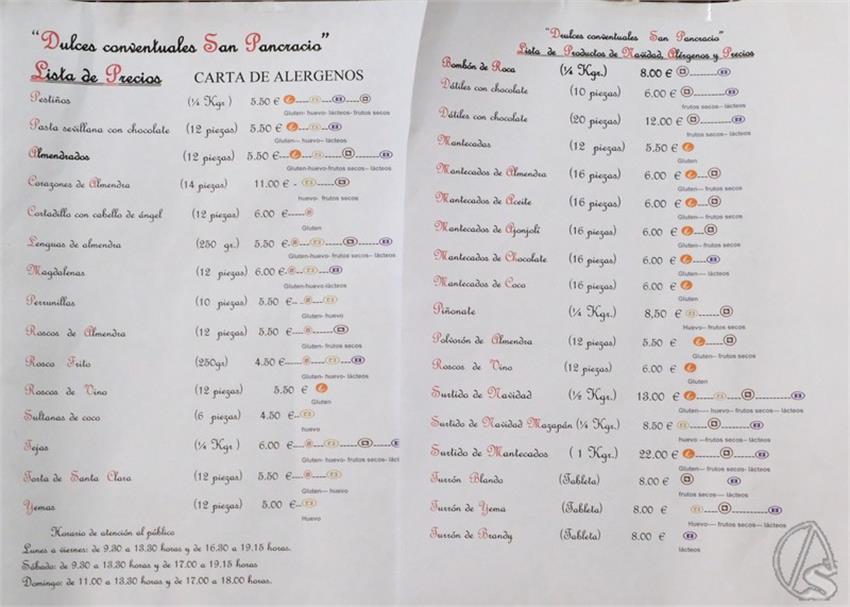 “Dulces conventuales San Pancracio”
Lista de Precios CARTA DE ALERGENOS
Pestiños (¼ Kgr ) 5.50 €
Gluten- huevo- lácteos- frutos secos
Pasta sevillana con chocolate (12 piezas) 5.50 €
Gluten--- huevo- lácteos
Almendrados (12 piezas) 5.50 €
Gluten-huevo-frutos secos-- lácteos
Corazones de Almendra (14 piezas) 11.00 €
huevo- frutos secos
Cortadillo con cabello de ángel (12 piezas) 6.00 €
Gluten
Lenguas de almendra (250 gr.) 5.50 €
Gluten-huevo-frutos secos-- lácteos
Magdalenas (12 piezas) 6.00 €
Gluten-huevo-lácteos
Perrunillas (10 piezas) 5.50 €
Gluten- huevo
Roscos de Almendra (12 piezas) 5.50 €
Gluten- frutos secos
Rosco Frito (250gr) 4.50 €
Gluten- huevo- lácteos
Roscos de Vino (12 piezas) 5.50 €
Gluten
Sultanas de coco (6 piezas) 4.50 €
huevo
Tejas (¼ Kgr ) 6.00 €
Gluten- huevo- frutos secos- láct
Torta de Santa Clara (12 piezas) 5.50 €
Gluten--- huevo
Yemas (12 piezas) 5.00 €
Huevo
Horario de atención al público
Lunes a viernes: de 9.30 a 13.30 horas y de 16.30 a 19.15 horas.
Sábado: de 9.30 a 13.30 horas y de 17.00 a 19.15 horas
Domingo: de 11.00 a 13.30 horas y de 17.00 a 18.00 horas.
“Dulces conventuales San Pancracio”
Lista de Productos de Navidad, Alérgenos y Precios
Bombón de Roca (¼ Kgr.) 8.00 €
Dátiles con chocolate (10 piezas) 6.00 €
frutos secos-- lácteos
Dátiles con chocolate (20 piezas) 12.00 €
frutos secos-- lácteos
Mantecadas (12 piezas) 5.50 €
Gluten
Mantecados de Almendra (16 piezas) 6.00 €
Gluten-- frutos secos
Mantecados de Aceite (16 piezas) 6.00 €
Gluten-- frutos secos
Mantecados de Ajonjolí (16 piezas) 6.00 €
Gluten-- frutos secos
Mantecados de Chocolate (16 piezas) 6.00 €
Gluten---- lácteos
Mantecados de Coco (16 piezas) 6.00 €
Gluten
Piñonate (¼ Kgr.) 8,50 €
Huevo-- frutos secos
Polvorón de Almendra (12 piezas) 5.50 €
Gluten-- frutos secos
Roscos de Vino (12 piezas) 6.00 €
Gluten
Surtido de Navidad (½ Kgr.) 13.00 €
Gluten---- huevo-- frutos secos--- lácteos
Surtido de Navidad Mazapán (¼ Kgr.) 8.50 €
huevo ---frutos secos---- lácteos
Surtido de Mantecados ( 1 Kgr.) 22.00 €
Gluten-- frutos secos-- lácteos
Turrón Blando (Tableta) 8.00 €
frutos secos---- lácteos
Turrón de Yema (Tableta) 8.00 €
Huevo---- frutos secos--- lácteos
Turrón de Brandy (Tableta) 8.00 €
lácteos